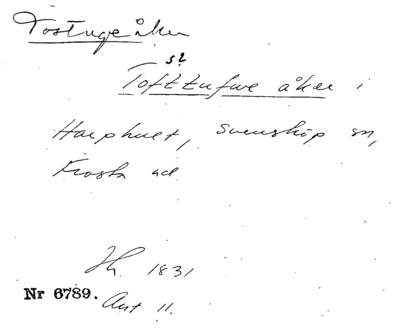 Tostuge åker
s?
Tofttufwe åker i
Harphult, Svensköp sn,
Frosta hd
Jh. 1831
Nr 6789.
Akt 11.